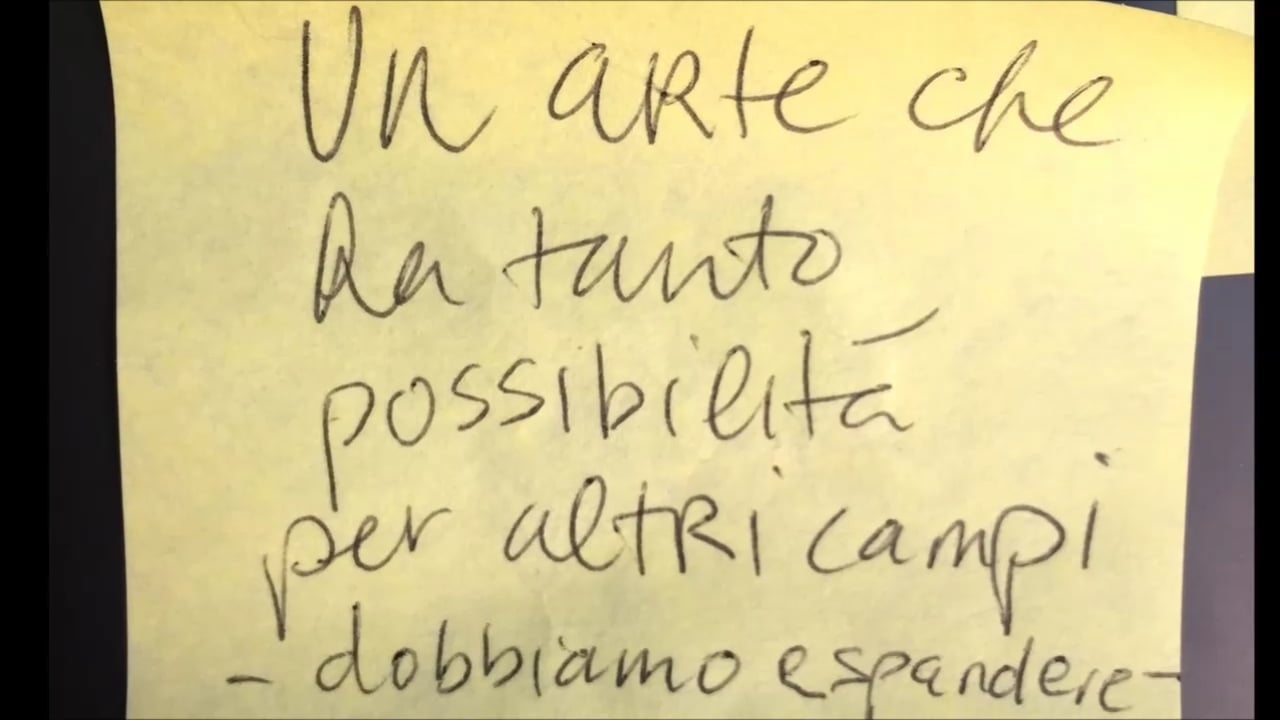 Un arte che
ha tanto
possibilitá
per altri campi
- dobbiamo espandere -